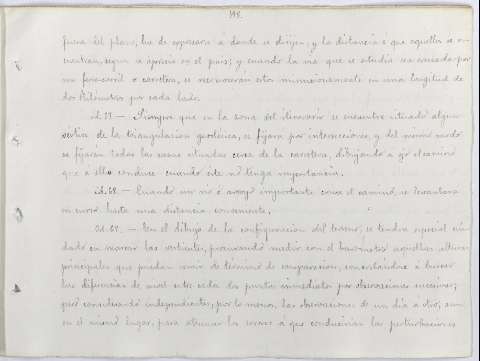 198.
fuera del plano, se expresará á donde se dirijen, y la distancia á que aquellos se en-
cuentran, segun se aprecie en el pais; y cuando la via que se estudia sea cruzada por
un ferro-carril ó carretera, se reconocerán estos minuciosamente en una longitud de
dos kilómetros por cada lado.
id. 57. — Siempre que en la zona del itinerario se encuentre situado algun
vértice de la triangulacion geodésica, se fijará por intersecciones, y del mismo modo
se fijarán todas las casas situadas cerca de la carretera, dibujando á ojo el camino
que á ellas conduce cuando éste no tenga importancia.
id. 58. — Cuando un rio ó arroyo importante cruce el camino, se levantará
su curso hasta una distancia conveniente.
— En el dibujo de la configuracion del terreno, se tendrá especial cui-
dado en marcar las vertientes, procurando medir con el barómetro aquellas alturas
principales que puedan servir de término de comparacion, concretándose á buscar
las diferencias de nivel entre cada dos puntos inmediatos por observaciones sucesivas;
pero considerando independientes, por lo menos, las observaciones de un dia á otro, aun
en el mismo lugar, para atenuar los errores á que conducirian las perturbaciones